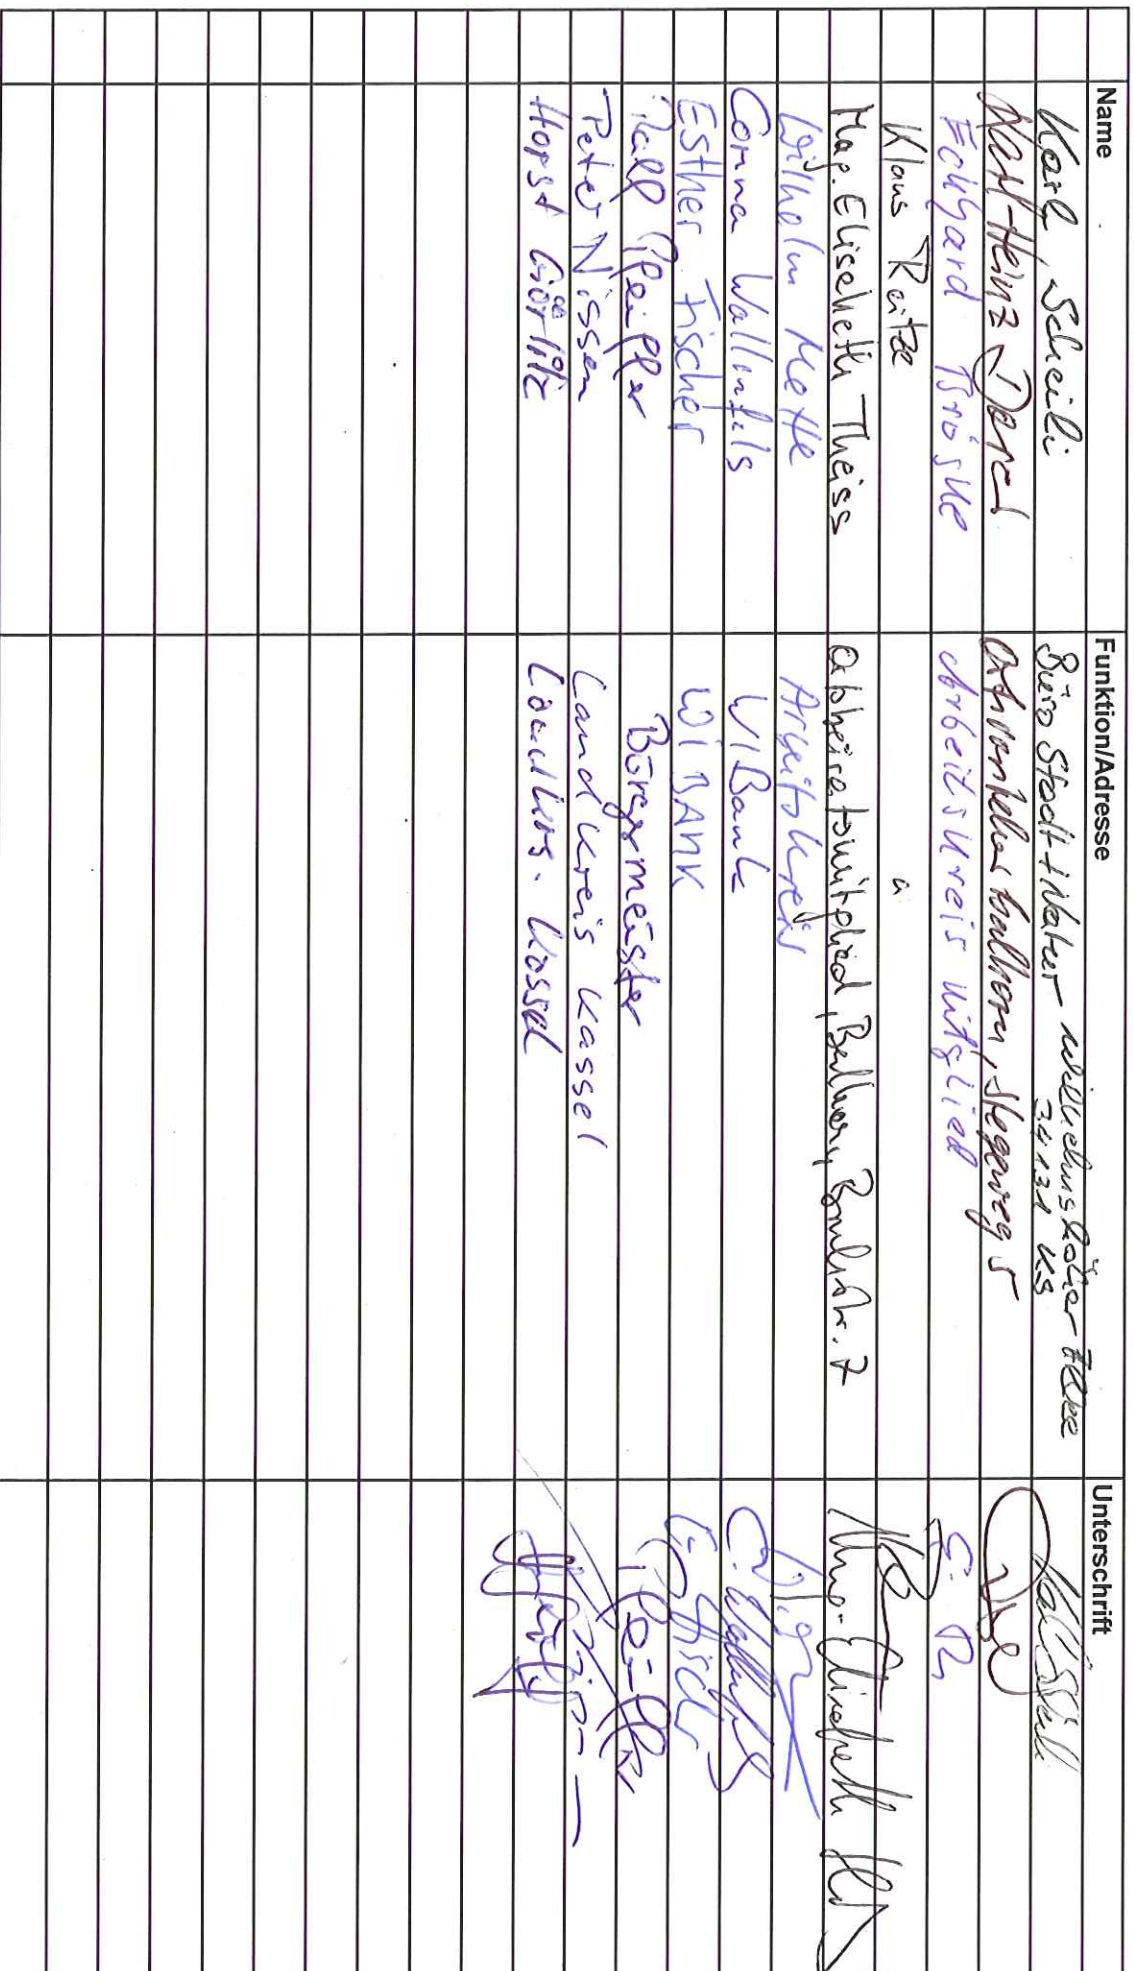 Name Funktion/Adresse Unterschrift
Karl Scheili Büro Stadt + Natur Wilhelmshöher Allee
34131 KS
Karl-Heinz Ballhorn, Stegerweg 5
Eckhard Bröske Arbeitskreis mitglied E. B.
Klaus Reitze "
Mag. Elisabeth Theiss Ortsbeiratsmitglied, Balhorn, 7
Wilhelm Mette Arbeitskreis
Corinna Wallinfels WIBank C. Wallinfels
Esther Fischer WIBANK E. Fischer
Ralf Pfeiffer Bürgermeister Pfeiffer
Peter Nissen Landkreis Kassel
Horst Görlitz Landkrs. Kassel